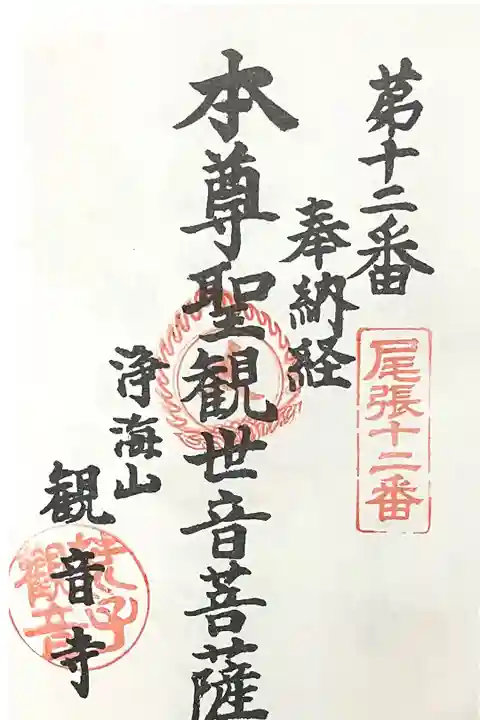 第十二番
奉納経
尾張十二番
本尊聖観世音菩薩
浄海山
観音寺
荒子
觀音